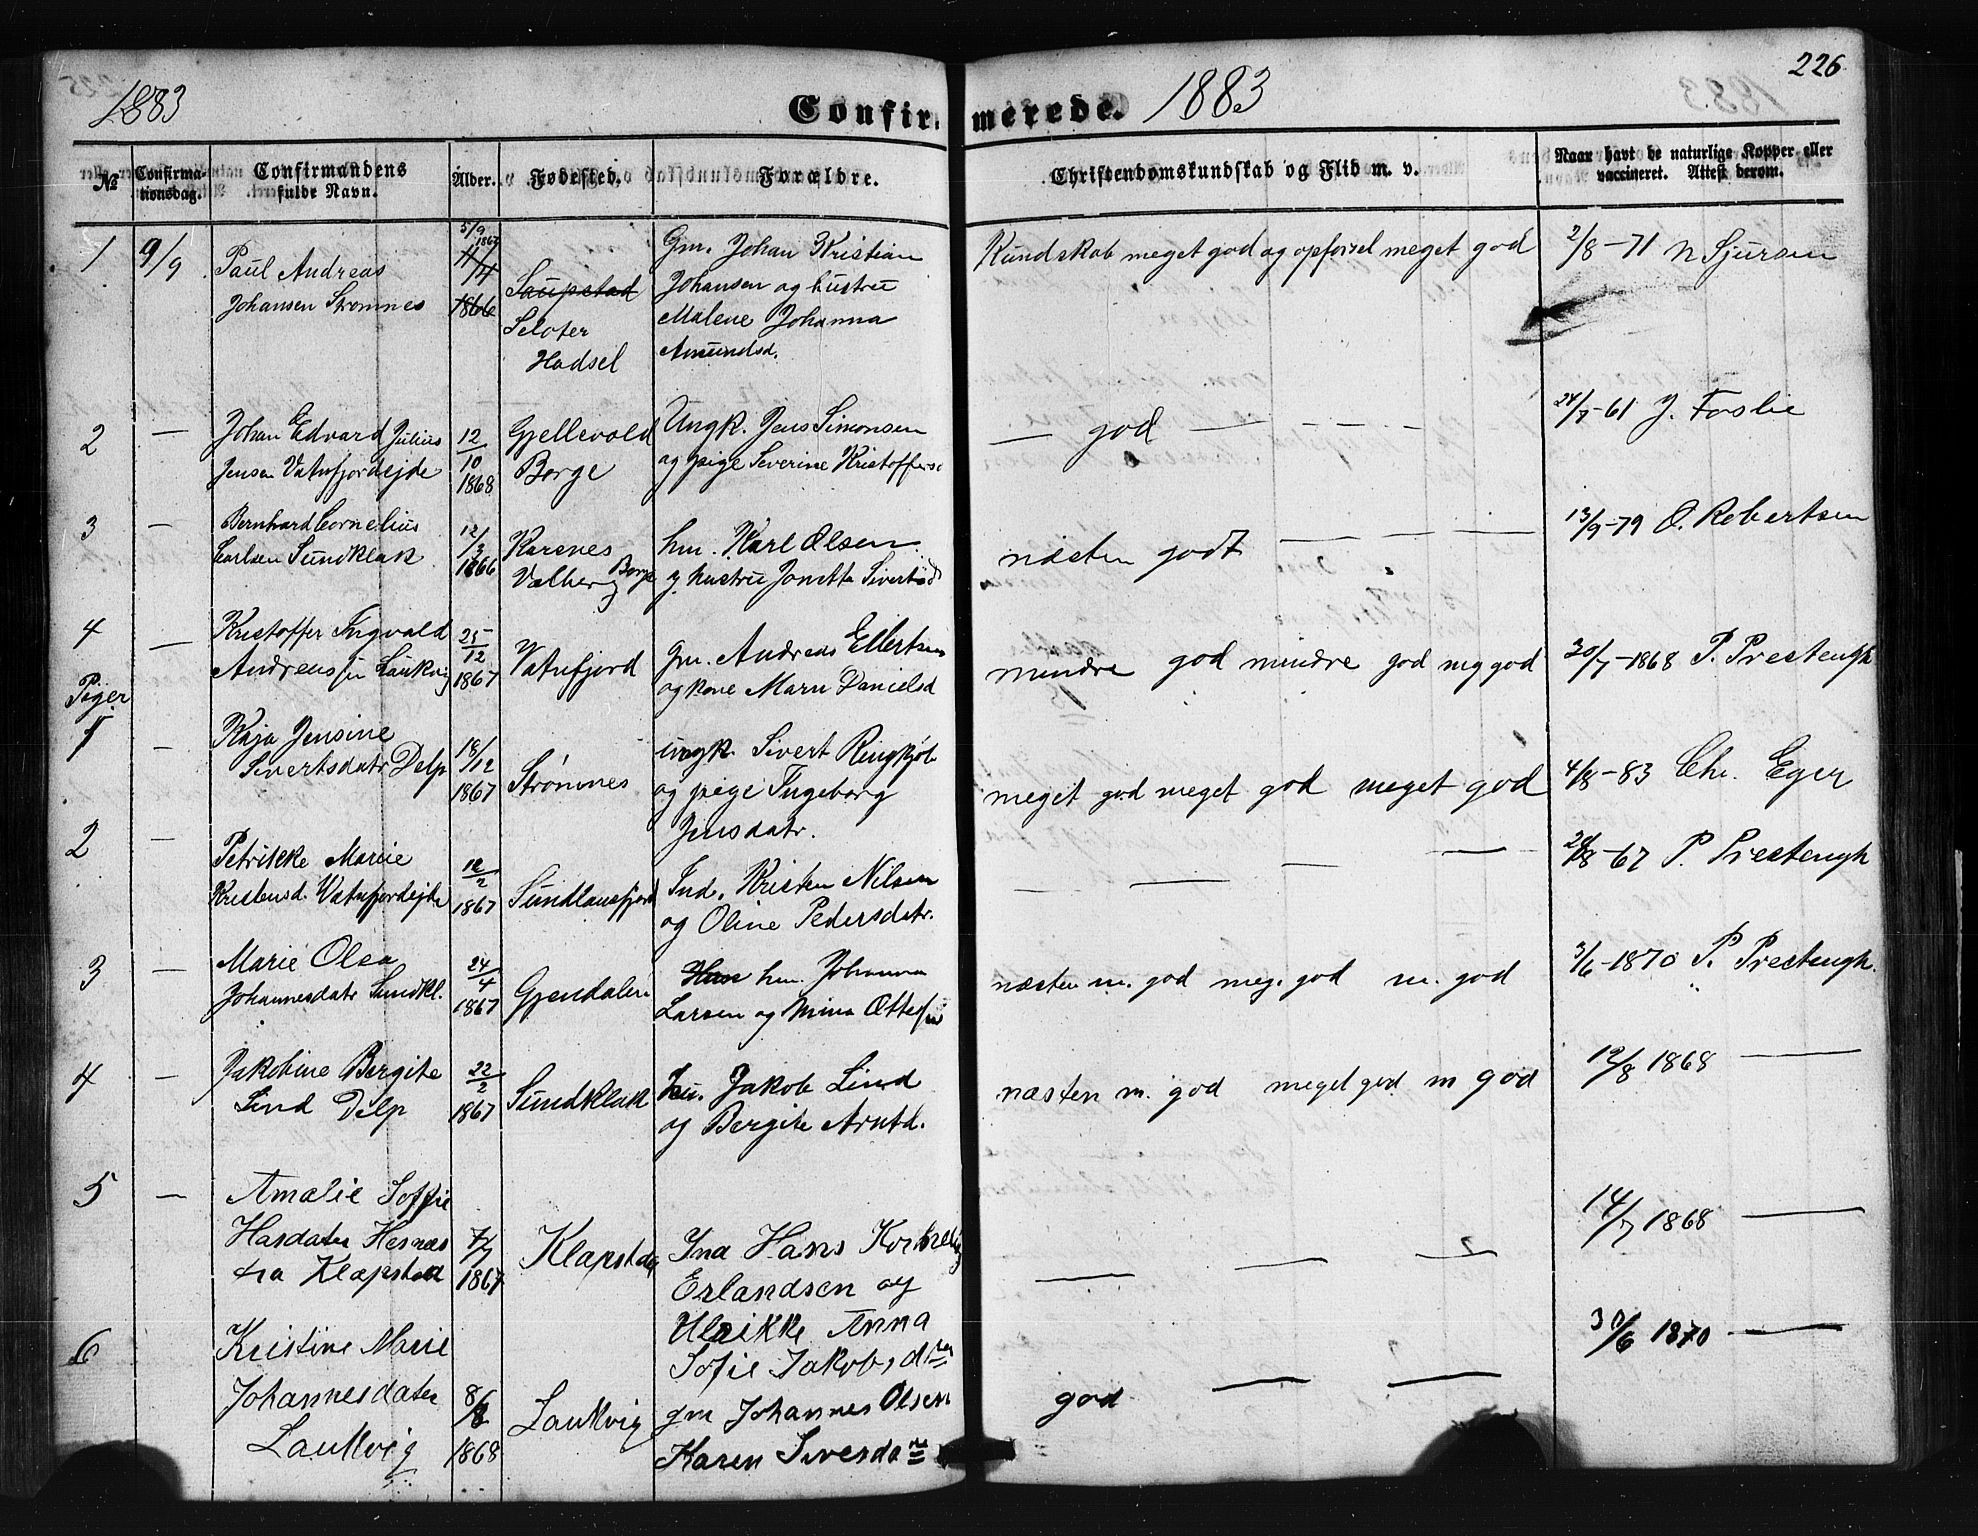 226
1883
Confirmerede. 1883
№
Confirma-
tionsdag.
Confirmandens
fulde Navn.
Alder.
Fødested.
Forældre.
Christendomskundskab og Flid m. v.
Naar havt de naturlige Kopper eller
vaccineret. Attest derom.
1 9/9
Paul Andreas
Johansen Strømnes
5/9
1867
11/4
1866
Saupstad
Seloter
Hadsel
Gm. Johan Kristian
Johansen og hustru
Malene Johanna
Amundsd.
Kundskab meget god og opførsel meget god
2/8-71 N Sjursen
2 —
Johan Edvard Julius
Jensen Vatnfjordejde
12
10
1868
Gjellevold
Borge
Ungk. Jens Simonsen
og pige Severine Kristoffersd
— god — — — —
24/7-61 J. Foslie
3 —
Bernhard Cornelius
Carlsen Sundklak
12/3
1866
Karsnes
Valberg Borge
hm. Karl Olsen
g hustru Jonetta Sivertsd
næsten godt — — — —
13/9-79 O. Robertsen
4 —
Kristoffer Ingvald
Andreassen Laukvig
25
12
1867
Vatnfjord
gm. Andreas Ellertsen
og kone Marn Danielsd
mindre god mindre god meg god
20/7-1868 P. Prestengh
Piger
1 —
Kaja Jensine
Sivertsdatr Delp
18/12
1867
Strømnes
ungk. Sivert Ringkjøb
og pige Ingeborg
Jensdatr.
meget god meget god meget god
4/8-83 Chr. Eger
2 —
Petrikke Marie
Kristensd. Vatnfjordejde
12
2
1867
Sundlansfjord
Ind. Kristen Nilsen
og Oline Pedersdatr.
— — — —
28/8-67 P. Prestengh
3 —
Marie Olea
Johannesdatr Sundkl.
24
4
1867
Gjendalen
Hans hm. Johannes
Larsen og Mina Ottesen
næsten m. god meg. god m. god
3/6-1870 P. Prestengh.
4 —
Jakobine Bergite
Lind Delp
22
2
1867
Sundklak
hu. Jakob Lind
og Bergite Arntd.
næsten m. god meget god m god
12/8 1868 —
5 —
Amalie Soffie
Hasdater Hesnæs
fra Klapstad
7/7
1867
Klapstad
Ina Hans Kornelius
Erlandsen og
Ulrikke Anna
Sofie Jakobsd
— — —
14/7 1868 —
6
Kristine Marie
Johannesdater
Laukvig
8/8
1868
Laukvig
gm Johannes Olsen
Karen Siversda
god — —
30/6 1870 —